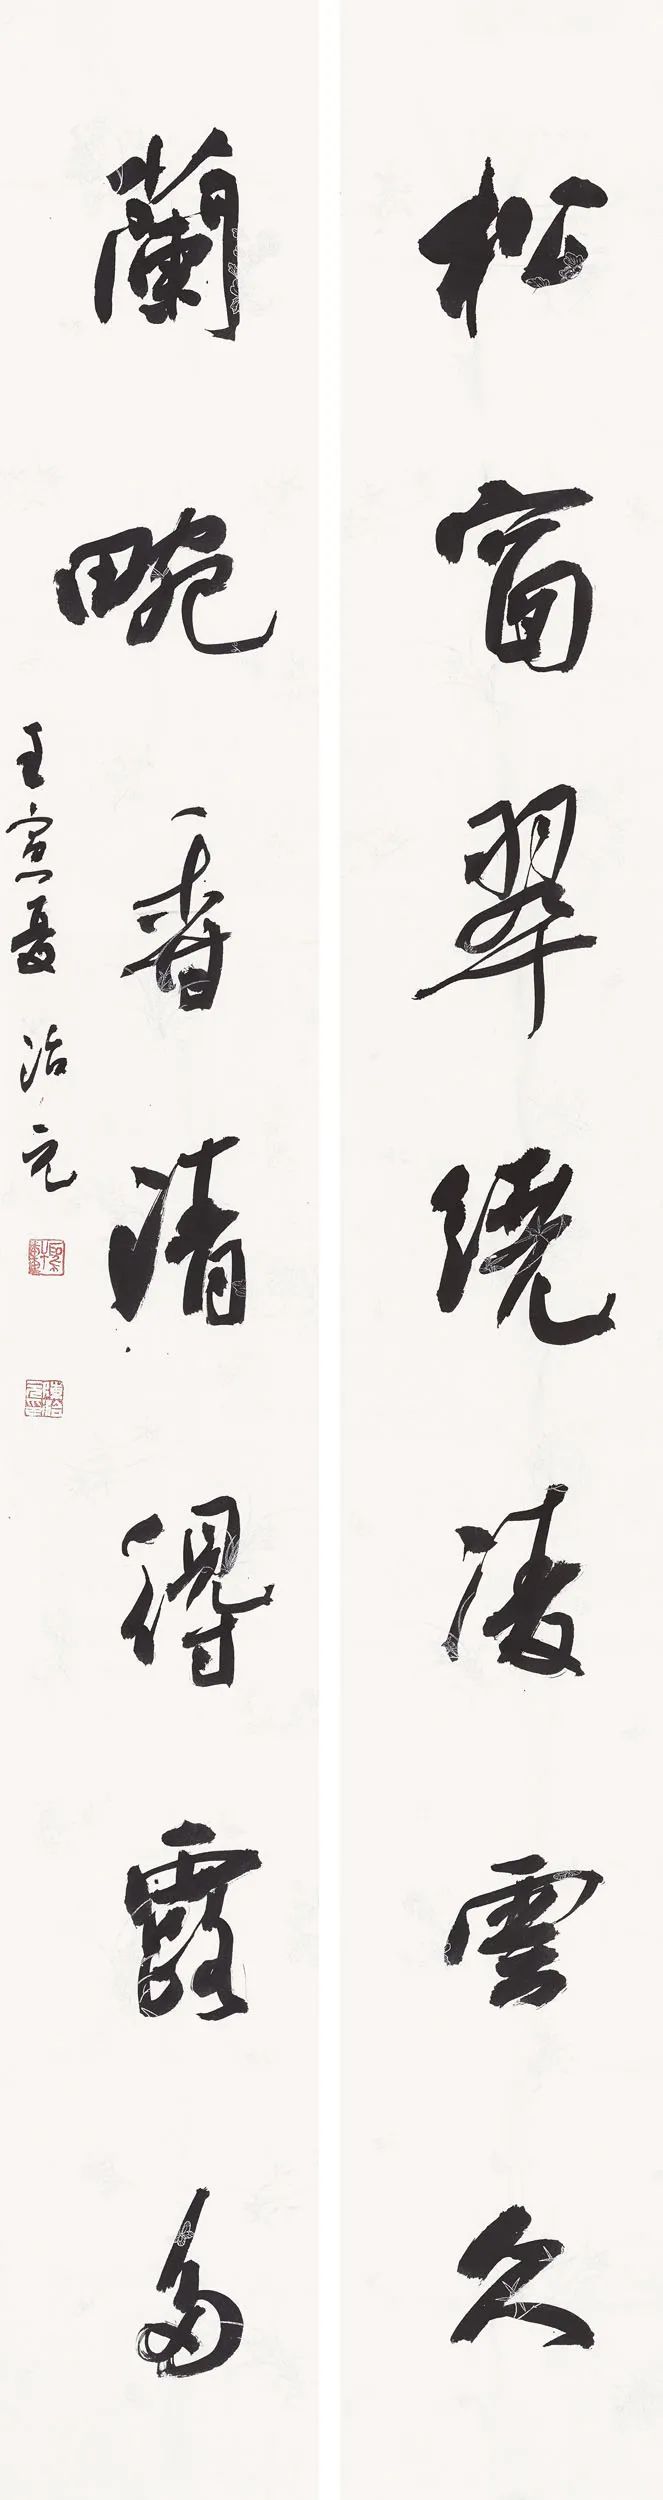 松窗翠繞凌雲久
蘭畹香清得露多
壬寅夏 治元